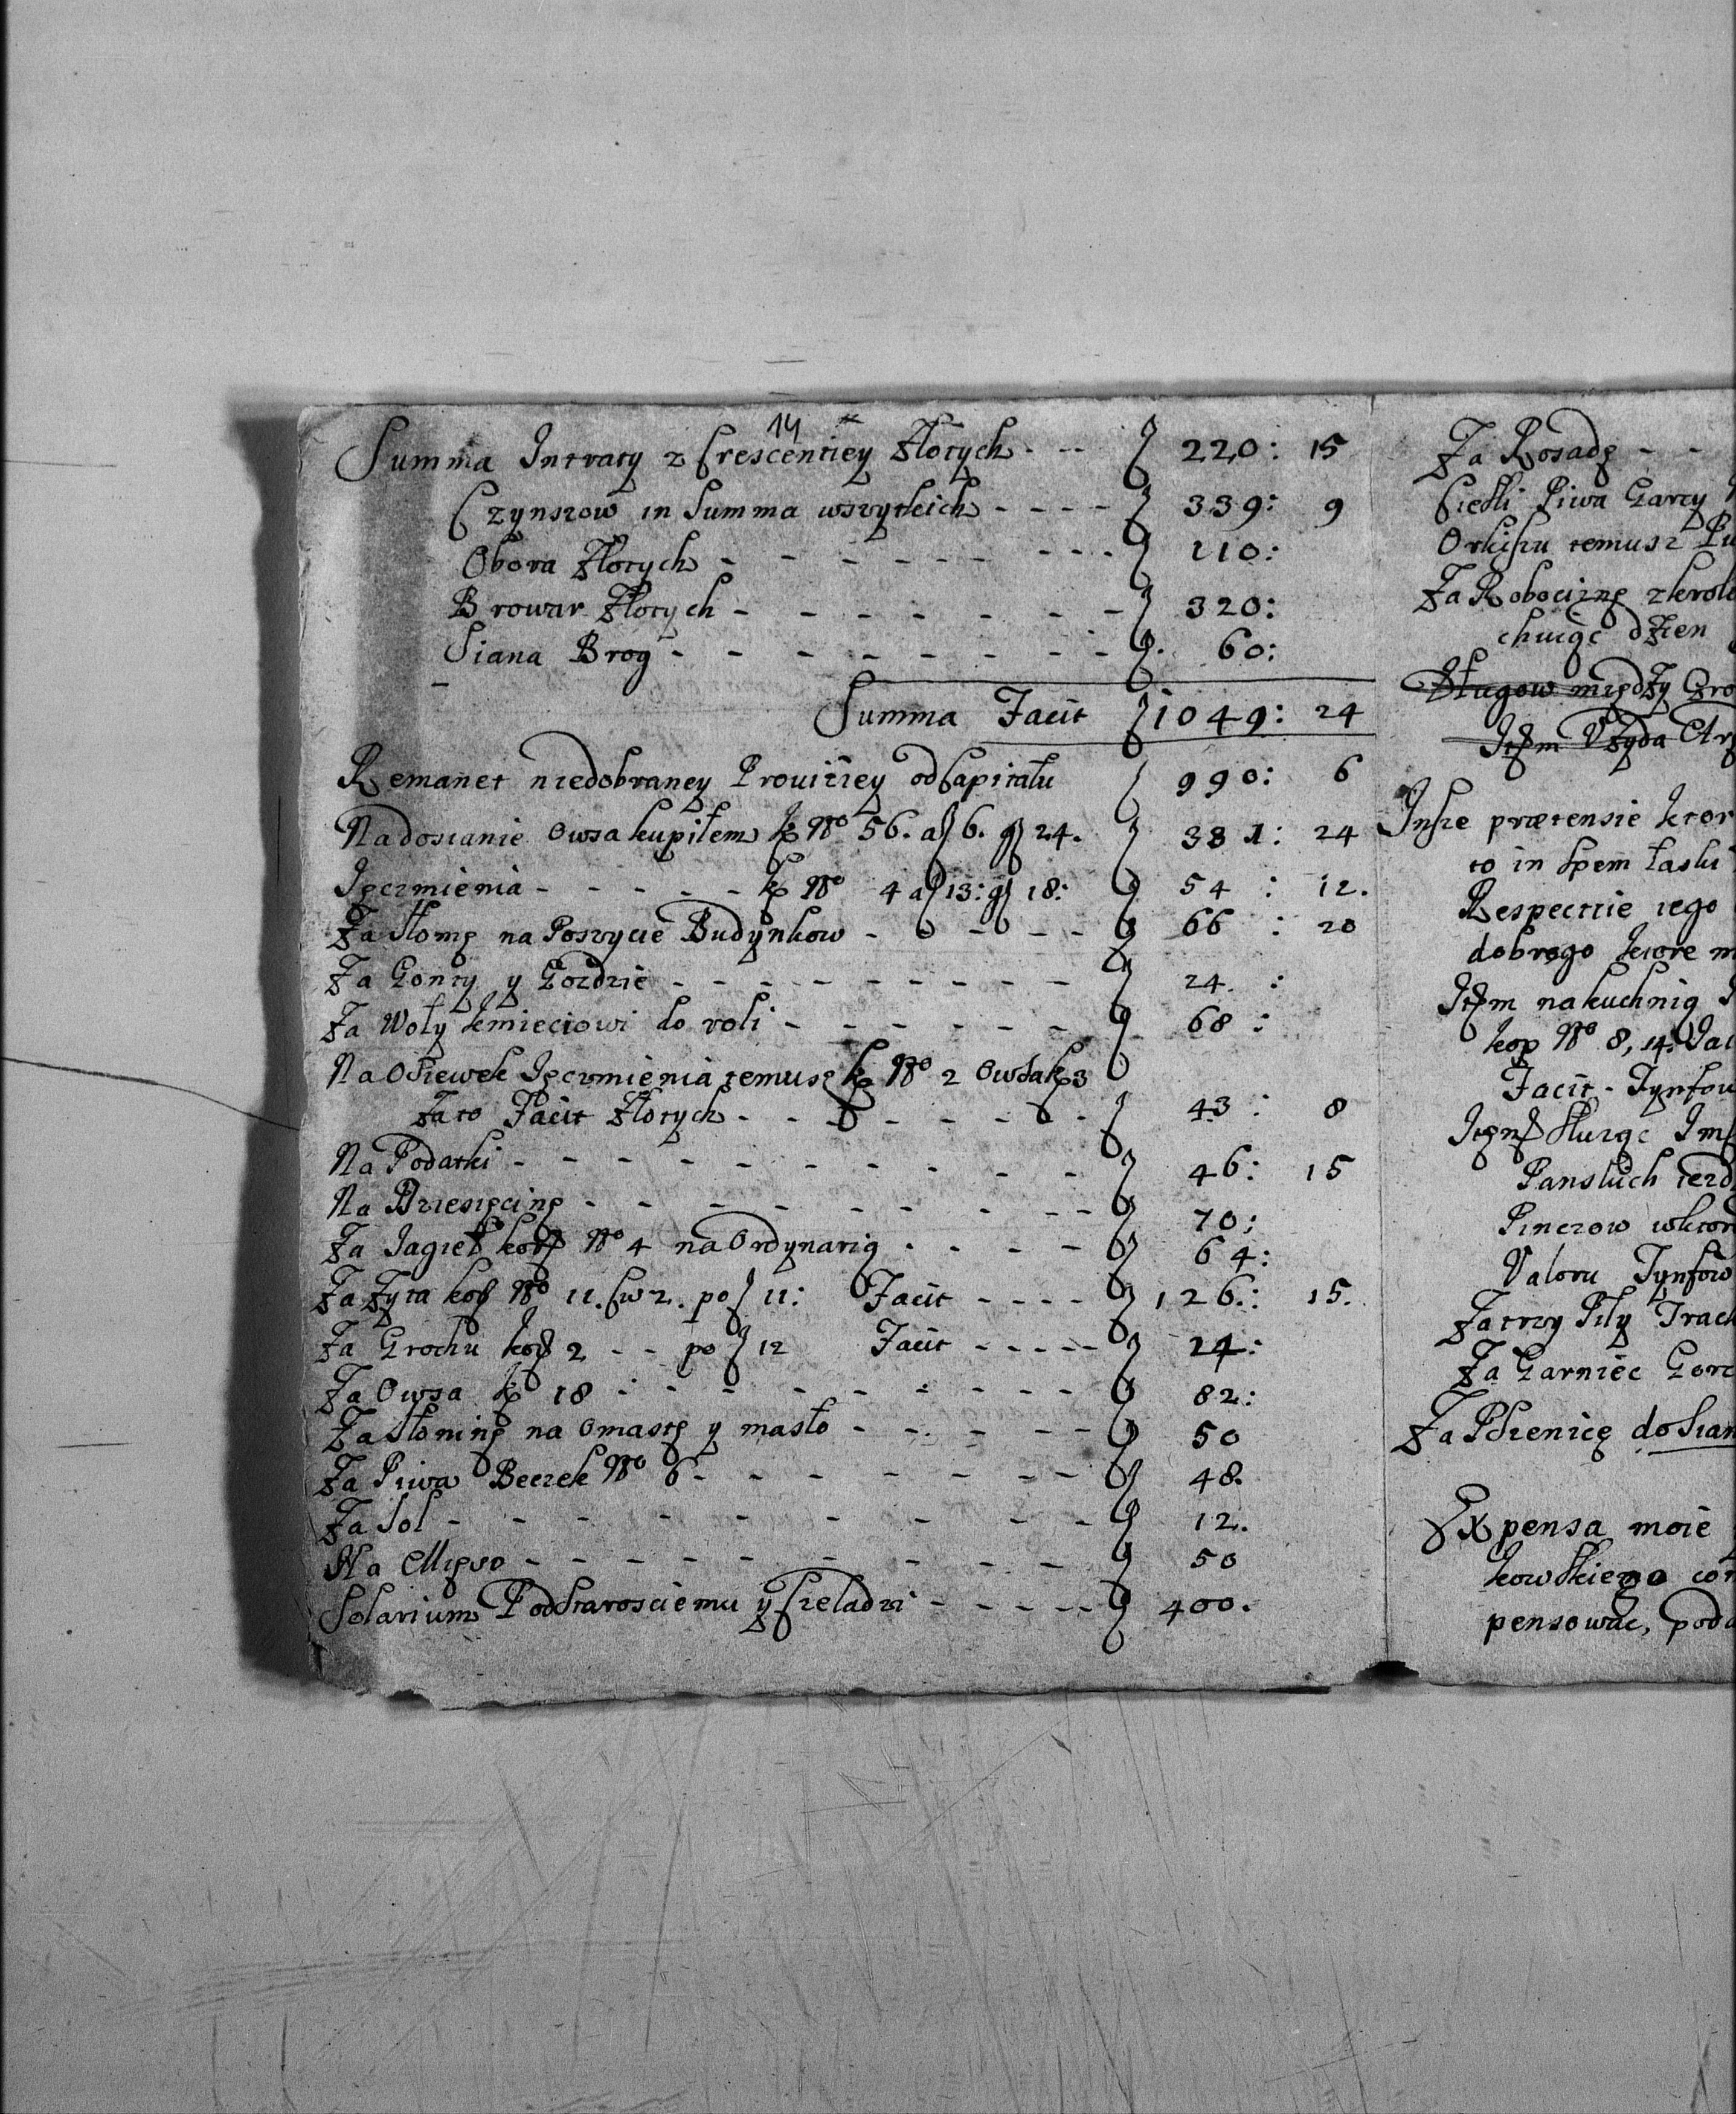 14
Summa Intraty z Crescentiey Złotych - - - 220: 15
Czynszow in Summa wszytkich - - - - 339: 9
Obora Złotych - - - - - - - - - 110:
Browar Złotych - - - - - - - 320:
Siana Brog - - - - - - - - 60:
Summa Facit 1049: 24
Remanet niedobraney Prouitiey od Capitału 990: 6
Na dosianie Owsa kupiłem k No 56. a 6. g 24. 381: 24
Jęczmienia - - - - - k No 4 a 13: g 18: 54 : 12.
Za Słomę na Poszycie Budynkow - - - - - 66 : 20
Za Gonty y Gozdzie - - - - - - - - - 24. :
Za Woły kmieciowi do roli - - - - - - 68 :
Na Osiewek Jęczmienia temusz k No 2 Owsa k 3
Za to Facit Złotych - - - - - - - - 43 : 8
Na Podatki - - - - - - - - - - 46: 15
Na Dziesięcinę - - - - - - - - - 70:
Za Jagieł kor No 4 na Ordynarią - - - - 64:
Za Zyta kor No 11. cw 2. po 11: Facit - - - - 126: 15.
Za Grochu kor 2 - - po 12 Facit - - - - - 24:
Za Owsa k 18 - - - - - - - - - 82:
Za Słoninę na Omastę y masło - - - - - - 50
Za Piwa Beczek No 6 - - - - - - - 48.
Za Sol - - - - - - - - - - 12.
Na Mięso - - - - - - - - - 50
Solarium Podstarosciemu y Czeladzi - - - - - 400.
Za Rosadę - -
Piwa Garcy
Orkiszu temusz
Za Robociznę
dzien
Sługow między
Item
Insze prætensie ktor
to in spem łaski
Respectie iego
dobrego ktore m
Item na kuchnią
kop No 8, 14.
Facit - Tynfow
Służąc
Pinczow
Valoru Tynfow
Za trzy Piły Trac
Za Garniec Gorz
Za Pszenicę do Sian
Expensa moie
kowskiego
pensowac, poda